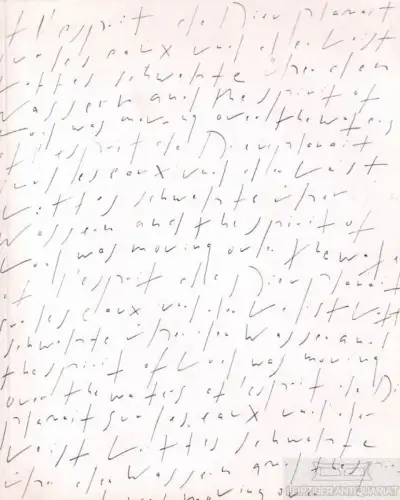 t l'esprit de Dieu planait
sur les eaux und der Geist
Gottes schwebte über dem
Wassern and the spirit of
God was moving over the waters
et l'esprit de Dieu planait
sur les eaux und der Geist
Gottes schwebte über
Wassern and the spirit of
God was moving over the wate
et l'esprit de Dieu planait
sur les eaux und der Geist Gott
schwebte über den Wasser and
the spirit of God was moving
over the waters et l'esprit de Di
planait sur les eaux und der
Geist Gottes schwebte
über den Wassern and the spiri
moving o
LEIPZIGER ANTIQUARIAT